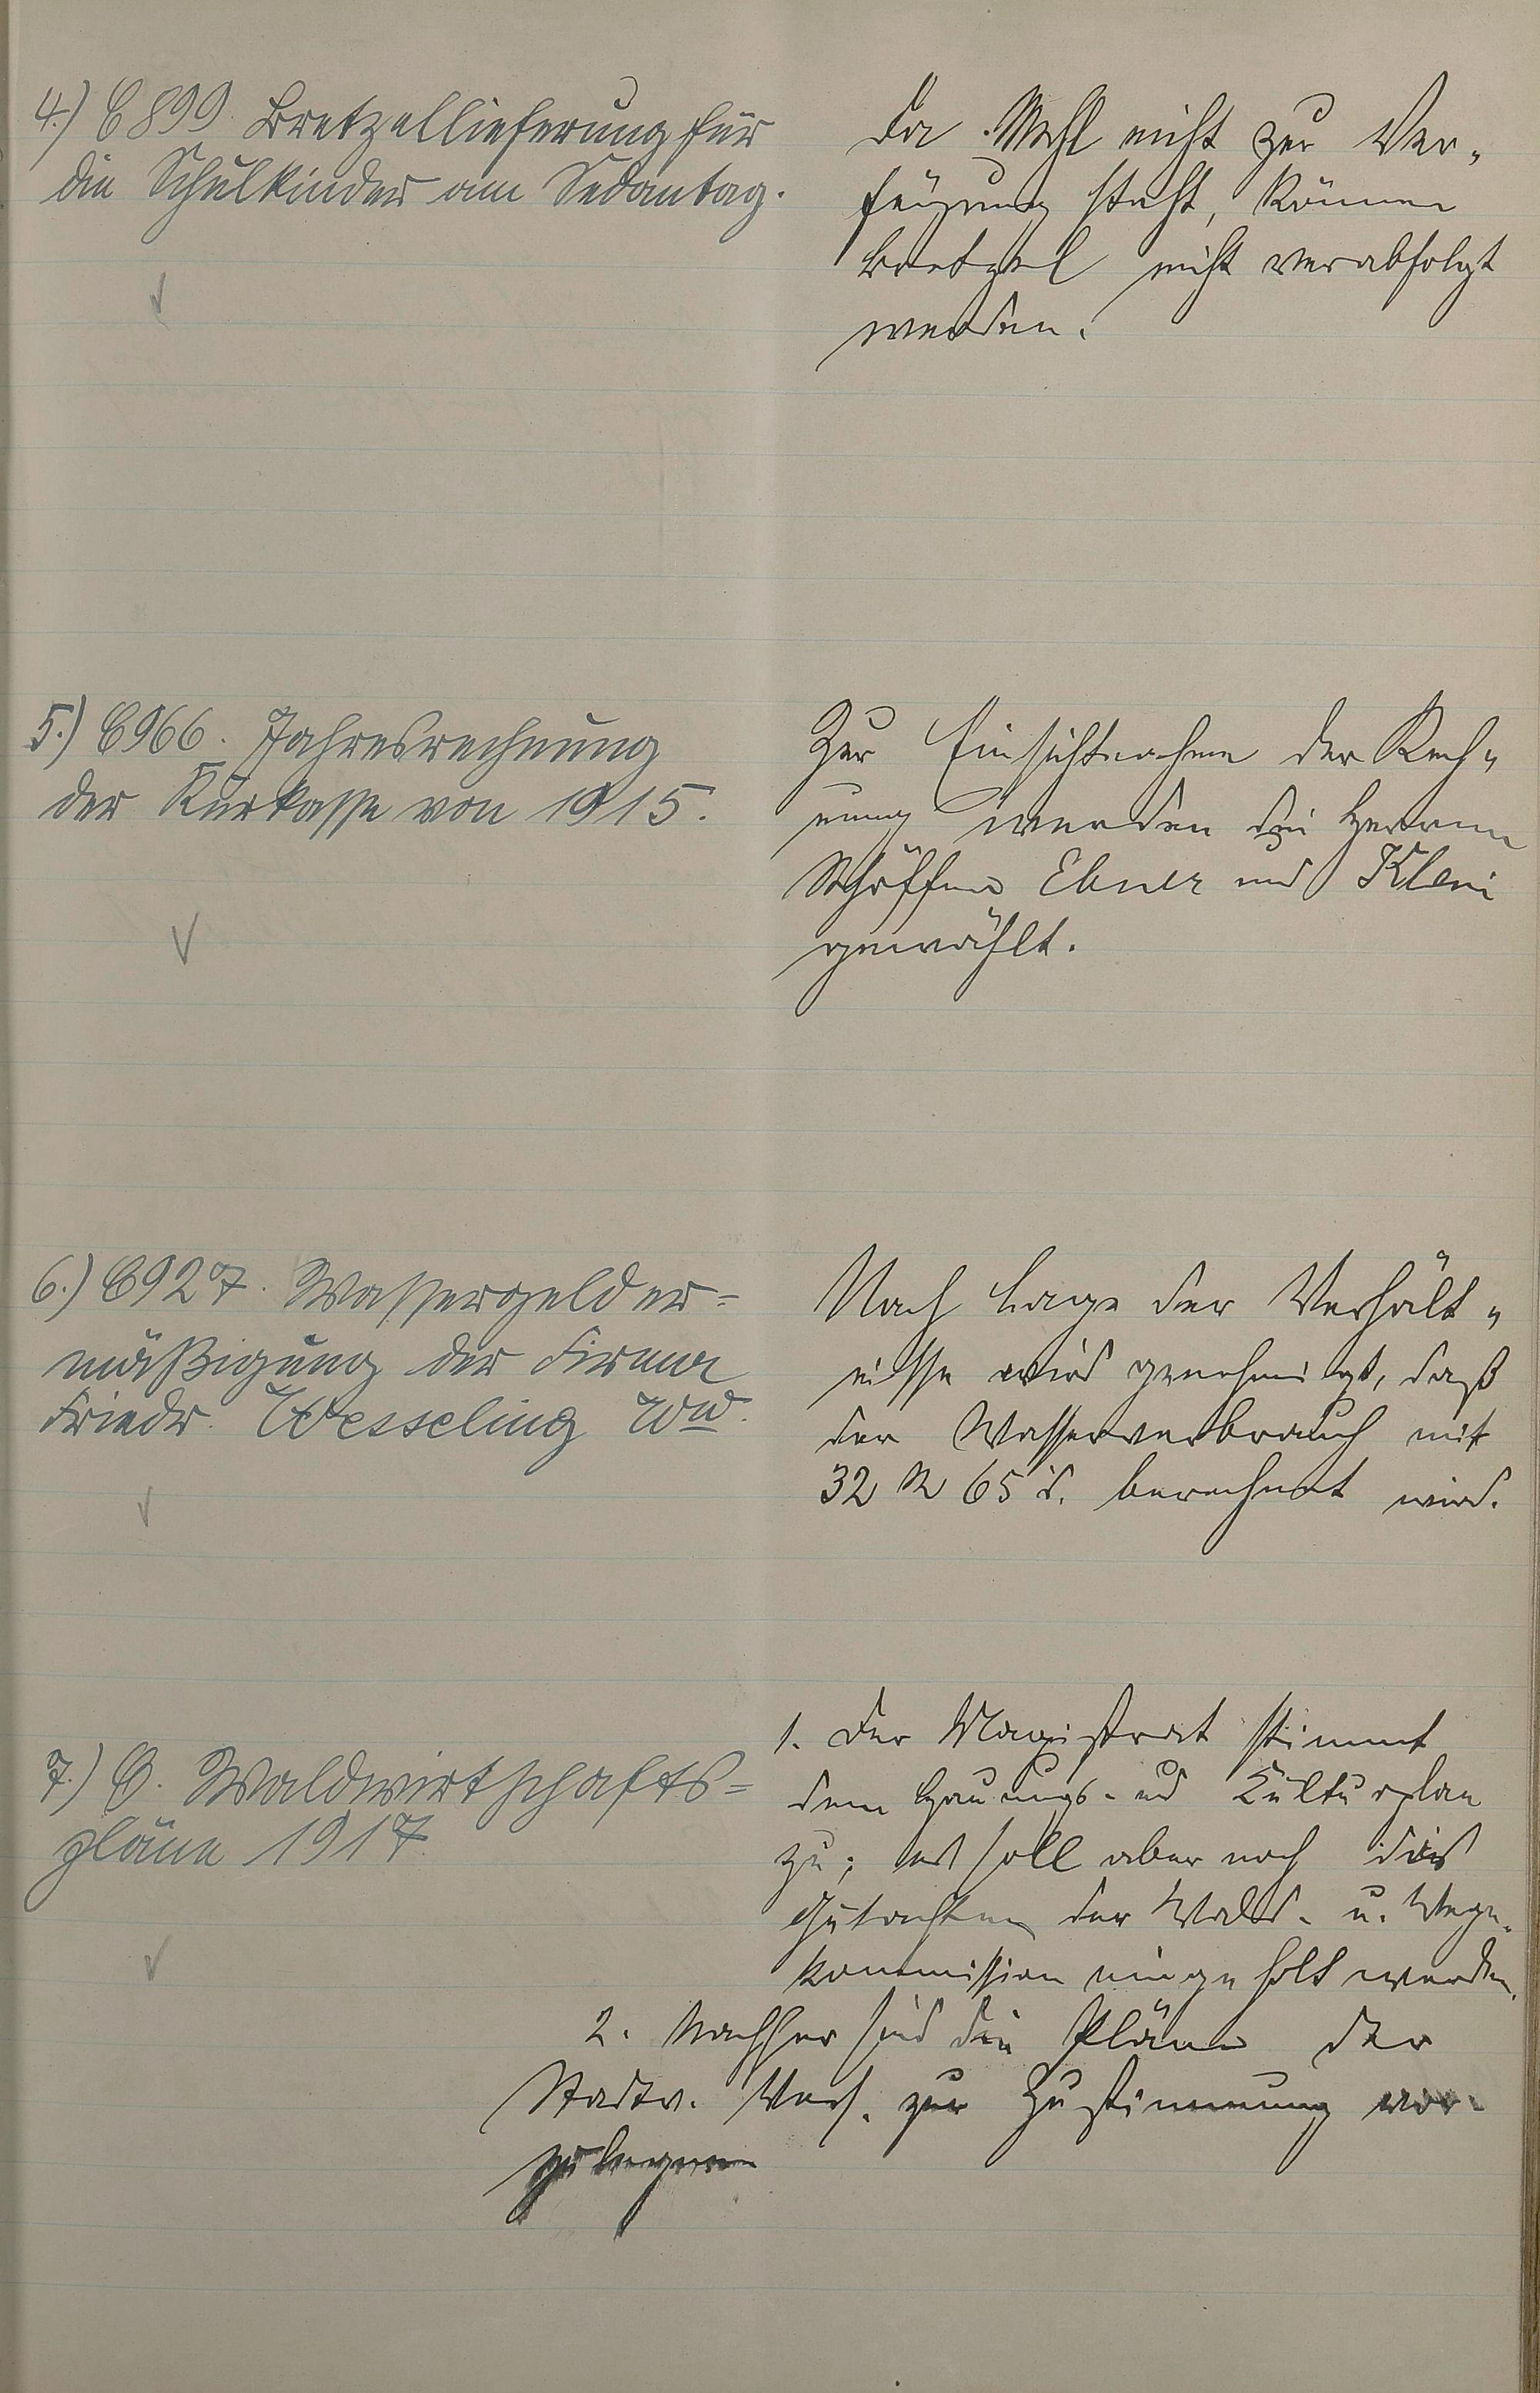 4.) C 899. Bretzellieferung für
die Schulkinder am Sedantag.
Da Mehl nicht zur Ver-
fügung steht, können
Bretzel nicht verabfolgt
werden.
5.) C 966. Jahresrechnung
der Kurkasse von 1915.
Zur Einsichtnahme der Rech-
nung werden die Herren
Schöffen Ebner und Klein
gewählt.
6.) C 927. Wassergelder=
mäßigung der Firma
Friedr. Wesseling Ww.
Nach Lage der Verhält-
nisse wird genehmigt, daß
der Wasserverbrauch mit
32 M 65 d. berechnet wird.
7.) C. Waldwirtschafts=
pläne 1917
1. Der Magistrat stimmt
dem Hauungs- und Kulturplan
zu; es soll aber noch das
Gutachten der Wald- u. Wege-
kommission eingeholt werden.
2. Nachher sind die Pläne der
Stadtv. Vers. zur Zustimmung vor-
zulegen